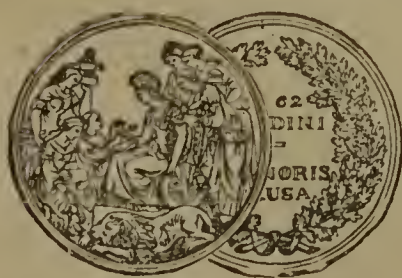 62
DINI
=
NORIS
USA